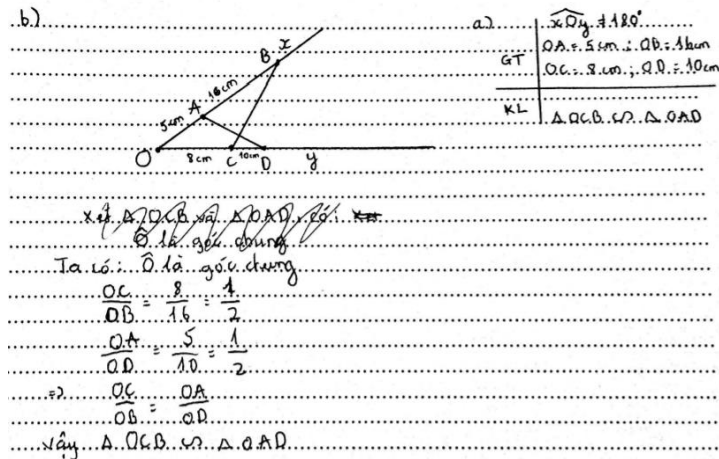 b)
x
B
16cm
A
5cm
O
8cm
C
10cm
D
y
a)
GT
xOy ≠ 180°
OA = 5cm ; OB = 16cm
OC = 8cm ; OD = 10cm
KL
Δ OCB ∽ Δ OAD
Xét Δ OCB và Δ OAD có:
Ô là góc chung
Ta có: Ô là góc chung
OC/OB = 8/16 = 1/2
OA/OD = 5/10 = 1/2
=> OC/OB = OA/OD
Vậy Δ OCB ∽ Δ OAD